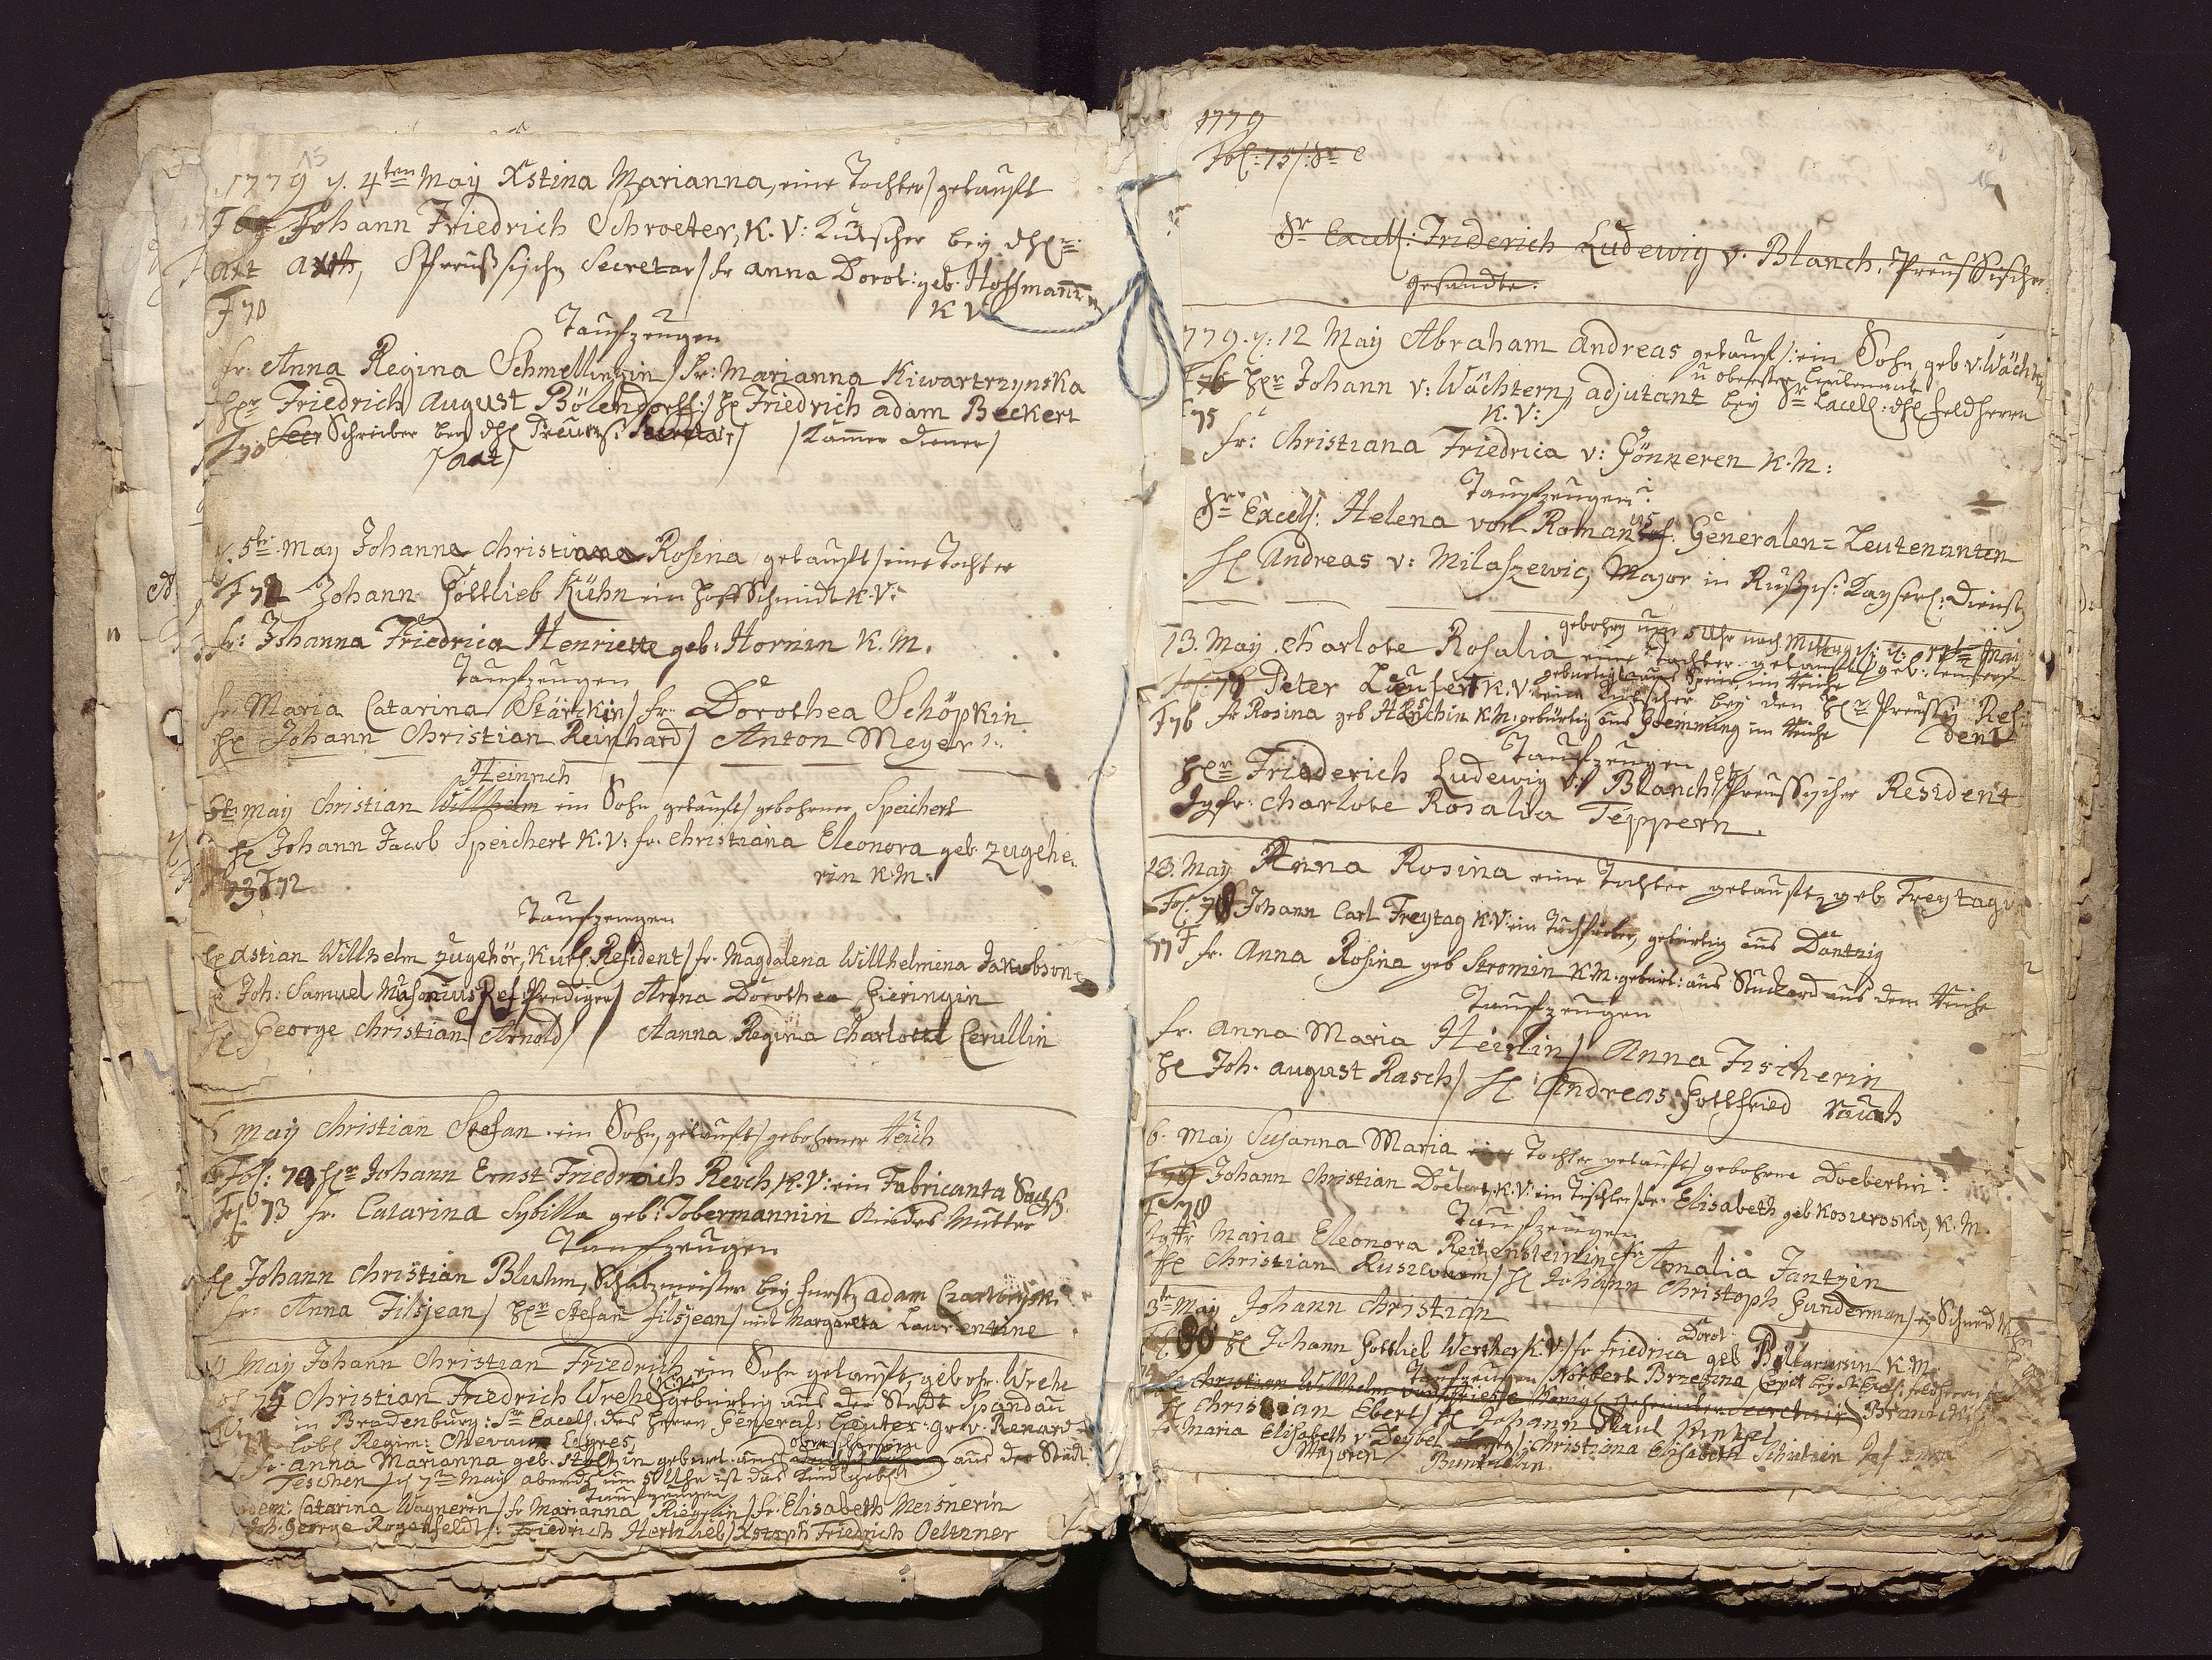 15
1779 d. 4ten May Xstina Marianna, eine Tochter getauft
F 69 Johann Friedrich Schroeter, K. V: Kutscher bey dhl
Axt Axth, Preußischn Secretar/ fr Anna Dorot: geb. Hoffmann
F 70 K V
Taufzeugen
fr. Anna Regina Schmellingin/ fr: Marianna Kiwartrzynska
Hr Friedrich August Bölendorff:/ H Friedrich Adam Beckert
F 70 Secr Schreiber bey dhl Preuss: Secretair/ /Kammer Diener/
/Axt/
d. 5te May Johanne Christiane Rosina getauft/ eine Tochter
F 72 Johann Gottlieb Kühn ein Hoffschmidt K. V:
fr: Johanna Friedrica Henriette geb: Hornin K. M.
Taufzeugen
fr. Maria Catarina Stärckin/ fr. Dorothea Schöpkin
H Johann Christian Reinhard/ Anton Meyer
Heinrich
6t May Christian Willhelm ein Sohn getauft/ gebohrner Speichert
H Johann Jacob Speichert K. V: fr. Christiana Eleonora geb. Zugehe-
73 F 72 rin K. M:
Taufzeugen
H Xstian Willhelm Zugehör, Kurl. Resident/ fr. Magdalena Willhelmina Jakobson
H Joh: Samuel Musonius Ref. Prediger/ Anna Dorothea Gieringin
H George Christian Arnold/ Anna Regina Charlotte Cerullin
May Christian Stefan ein Sohn, getauft/ gebohrner Reich
Fol: 74 Hr Johann Ernst Friedrich Reich, K. V: ein Fabricante
Fol 73 fr. Catarina Sybilla geb: Tobermannin Kindes Mutter
Taufzeugen
H Johann Christian Bluhm, Schatzmeister bey Furst Adam Czartoryski
fr: Anna Filsjean/ Hr Stefan Filsjean/ mit Margareta Laurentine
May Johann Christian Friedrich, ein Sohn getauft, gebohr. Wrehe
75 Christian Friedrich Wrehe K. V. gebürtig aus der Stadt Spandau
in Brandenburg: Sr Excell: des Herrn Generals Leuter: gr. v. Renard
Lobl Regim: Chevaux Legres
fr. Anna Marianna geb. Stoltzin geburt. aus aus der Stadt
Teschen d 7ten May abends um Uhr ist das Kind gebohr
Taufzeugen
Catarina Wagnerin/ fr Marianna Riegelin/ fr. Elisabeth Meisnerin
Joh. George Rogenfeldt/: Friedrich Hertzlieb/ Xstoph Friedrich Oeltzner
1779
Fol: 75/: Sr e
Sr Excell: Friderich Ludewig v. Blanch. Preussischer
Gesandte.
1779. d: 12 May Abraham Andreas getauft/: ein Sohn geb v. Wächter
u obrister Leutenant
F 76 Hr Johann v: Wächtern, Adjutant bey Sr Excell: dhl Feldherrn
K. V:
75 fr: Christiana Friedrica v: Gönneren K. M:
Taufzeugen:
Sr Excell: Helena von Romanius. Generalen= Leutenantin
H Andreas v: Milaszewic, Major in Rußsis: Kayserl: Dienst
gebohrn um 5 Uhr nach Mittag
13. May. Charlote Rosalia eine Tochter getauft/ geb:
gebürtig aus Speier, im Reiche
Fol: 77 Peter K. V: ein Kutscher bey den H Preussn Resi
F 76 fr Rosina geb K. M. gebürtig aus Goemming im Reiche dent
Taufzeugen
Hr Friederich Ludewig v: Blanch/ Preussischer Resident
Jgfr: Charlote Rosalia Teppern.
23. May Anna Rosina eine Tochter getauft, geb Freytagin
Fol: 78 Johann Carl Freytag K V: ein Tuchfärber, gebürtig aus Dantzig
77 F fr. Anna Rosina geb Stromin K. M. geburt: aus Stuckard aus dem Reiche
Taufzeugen
fr. Anna Maria Heirlin/ Anna Fischerin
H Joh. August Rasch/ H Andreas Gottfried Rauch
6. May Susanna Maria eine Tochter getauft/ gebohrne Doebertin
F 79 Johann Christian Doebert, K. V: ein Tischler/ fr. Elisabeth geb Kosuroska, K. M.
F 78 Taufzeugen
Jgfr Maria Eleonora Reitzensteinin/ fr. Amalia Jantzin
H Christian Ruszwurm/ H Johann Christoph Gunderman/ ein Schneider
3te May Johann Christian
Dorot
80 H Johann Gottlieb Werther K. V:/ fr Friedrica geb Bullariusin K. M
Taufzeugen/ Norbert Brzezina Capit bey Sr Excel: Feldherrn
Christian Willhelm von Friese Königl. Geheimter Secretair Branicki
H Christian Ebert/ H Johann Paul Kintzel
fr Maria Elisabeth v. Deybel Christiana Elisabeth
Majorin